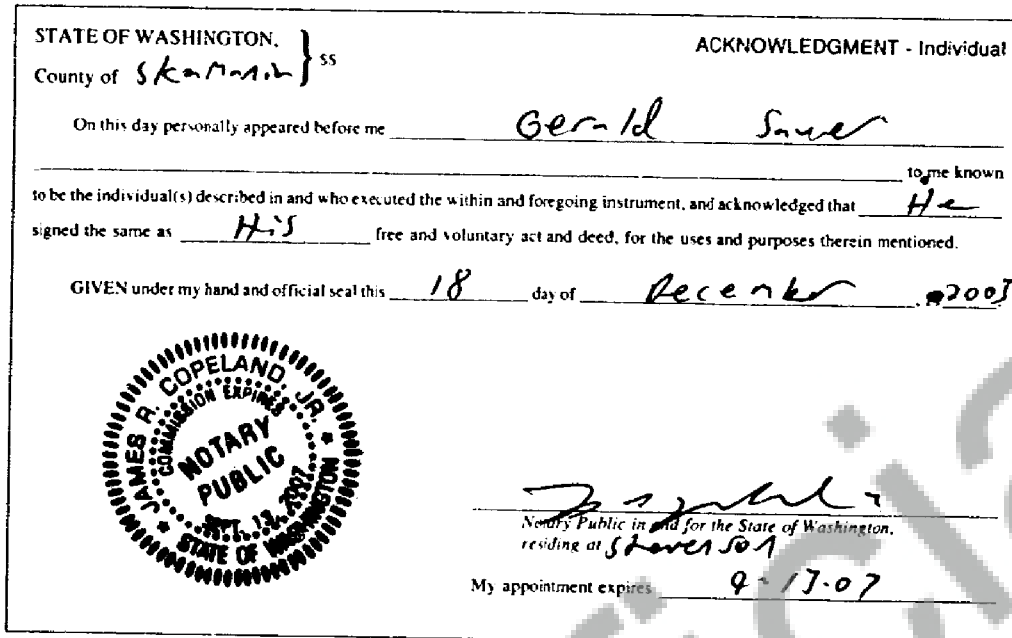 STATE OF WASHINGTON, } ss
ACKNOWLEDGMENT - Individual
County of Skamania
On this day personally appeared before me Gerald Sauer
to me known
to be the individual(s) described in and who executed the within and foregoing instrument, and acknowledged that He
signed the same as His free and voluntary act and deed, for the uses and purposes therein mentioned.
GIVEN under my hand and official seal this 18 day of December, 2003
JAMES R. COPELAND, JR.
COMMISSION EXPIRES
NOTARY
PUBLIC
SEPT. 13, 2007
STATE OF WASHINGTON
Notary Public in and for the State of Washington,
residing at Stevenson
My appointment expires 9-13-07